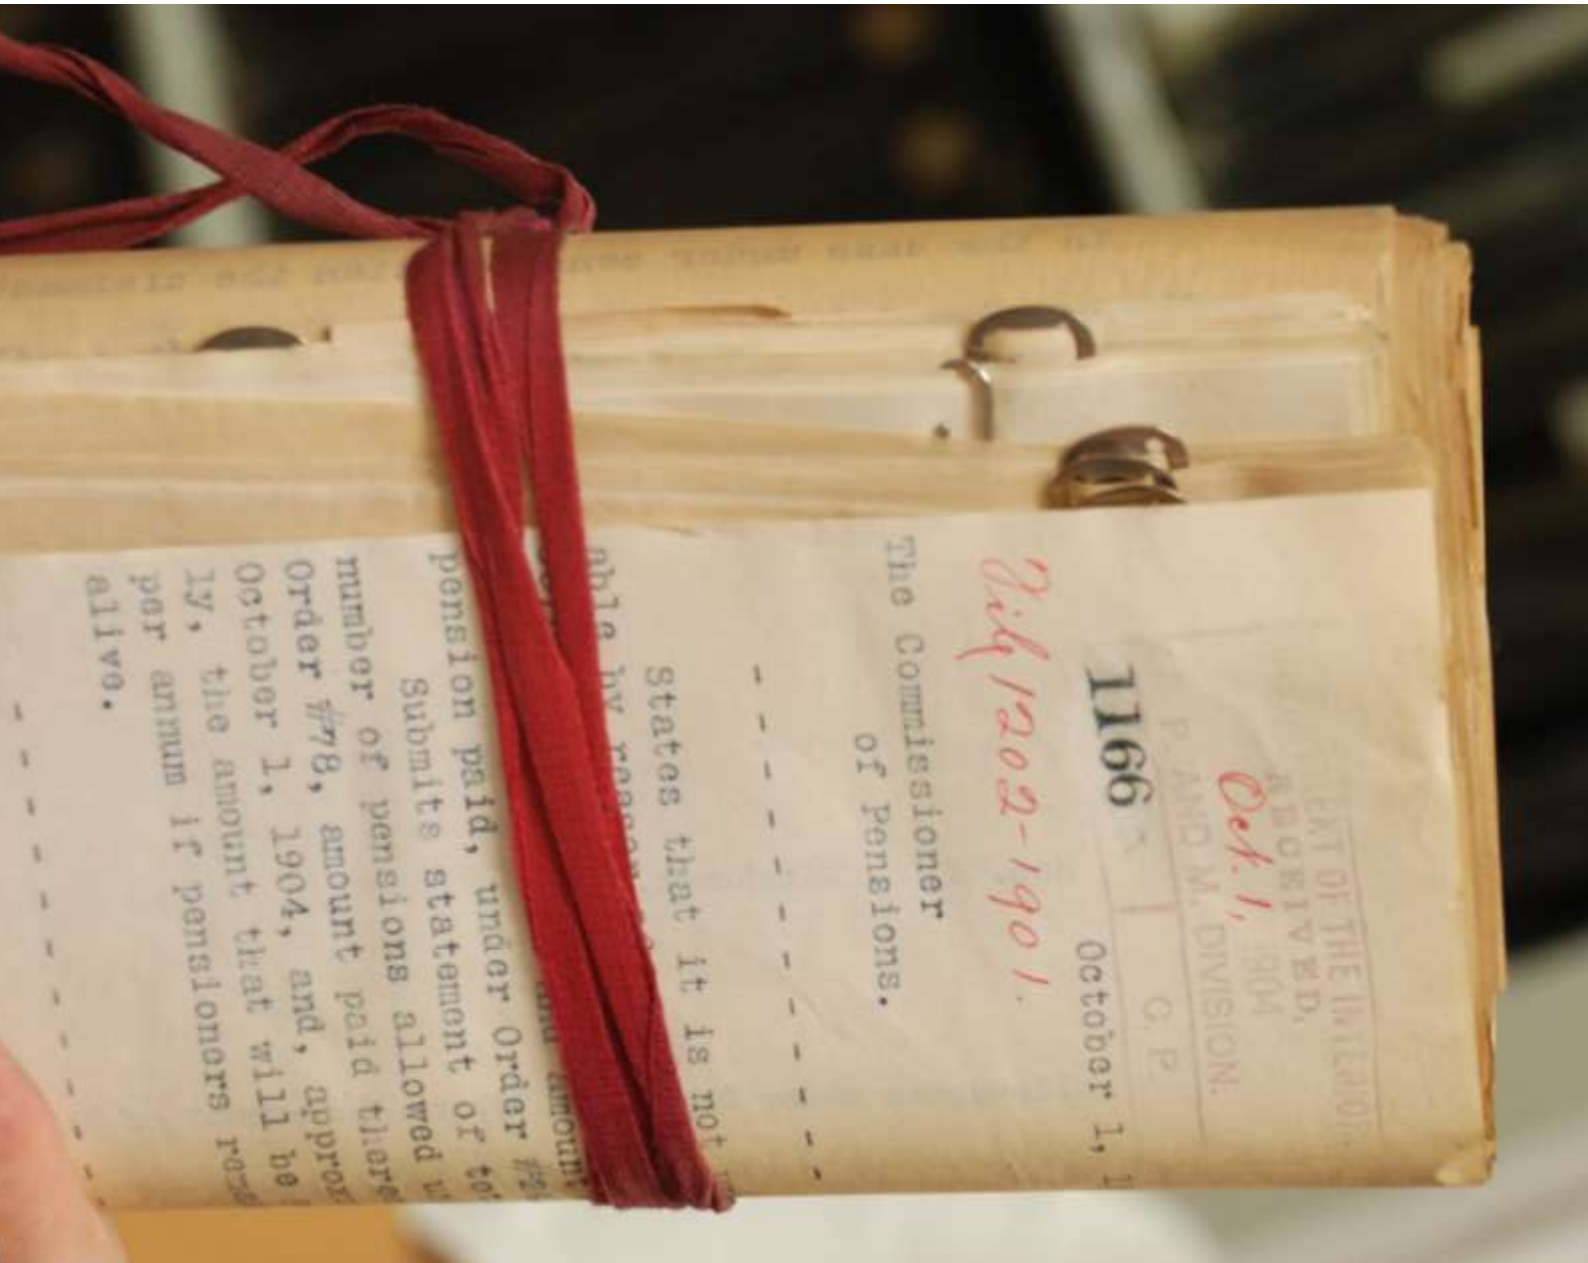 MENT OF THE INTERIOR.
RECEIVED,
Oct. 1, 1904
P. AND M. DIVISION.
C. P.
1166
October 1, 1
File 1202-1901.
The Commissioner
of Pensions.
- - - - - - - - - -
States that it is not
able by reason
and amount
pension paid, under Order
Submits statement of to
number of pensions allowed
Order #78, amount paid there
October 1, 1904, and, approx
ly, the amount that will be
per annum if pensioners rem
alive.
- - - - - - - - - -